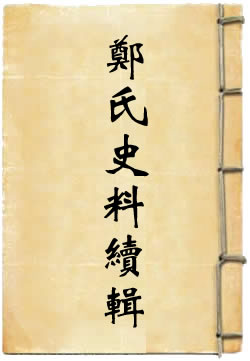 鄭氏史料續輯